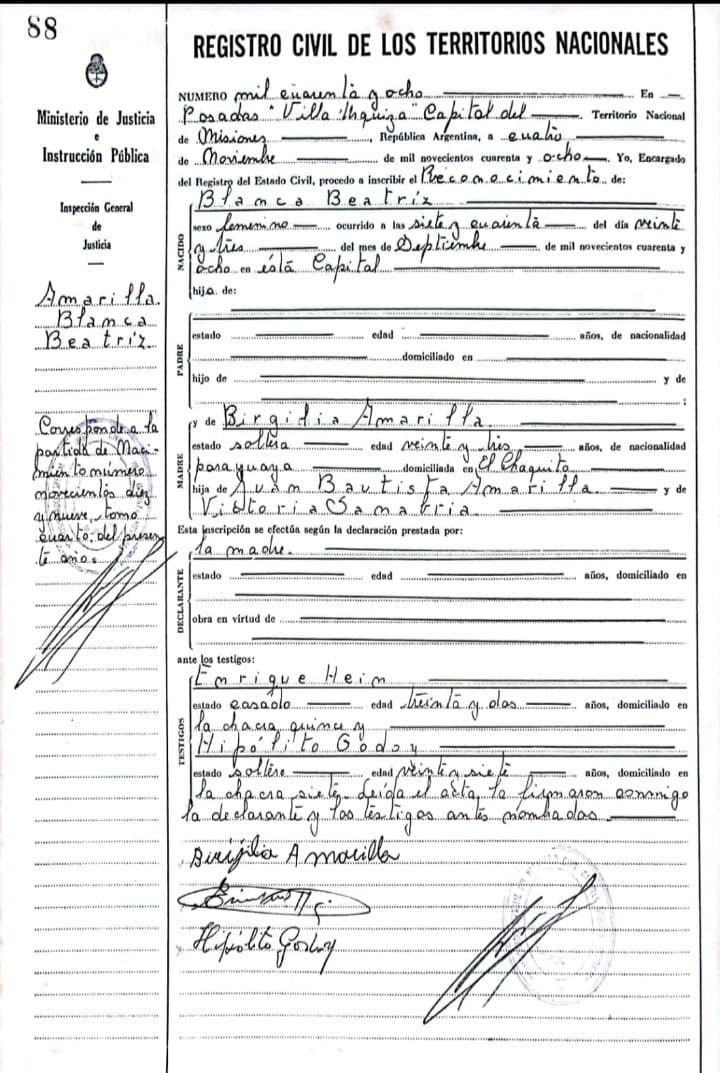 88
Ministerio de Justicia
e
Instrucción Pública
Inspección General
de
Justicia
Amarilla.
Blanca
Beatríz
Corresponde a la
partida de Naci-
miento número
novecientos diez
y nueve, tomo
cuarto, del presen
te año.
REGISTRO CIVIL DE LOS TERRITORIOS NACIONALES
NUMERO mil cuarenta y ocho En
Posadas "Villa Urquiza" Capital del Territorio Nacional
de Misiones, República Argentina, a cuatro
de Noviembre de mil novecientos cuarenta y ocho. Yo, Encargado
del Registro del Estado Civil, procedo a inscribir el Reconocimiento de:
Blanca Beatríz
NACIDO
sexo femenino ocurrido a las siete y cuarenta del día veinte
y tres del mes de Septiembre de mil novecientos cuarenta y
ocho en ésta Capital
hija de:
PADRE
estado edad años, de nacionalidad
domiciliado en
hijo de y de
;
MADRE
y de Birgilia Amarilla.
estado soltera edad veinte y tres años, de nacionalidad
paraguaya domiciliada en El Chaquito
hija de Juan Bautista Amarilla. y de
Victoria Sanabria.
Esta inscripción se efectúa según la declaración prestada por:
la madre.
DECLARANTE
estado edad años, domiciliado en
obra en virtud de
ante los testigos:
TESTIGOS
Enrique Hein
estado casado edad treinta y dos años, domiciliado en
la chacra quince y
Hipólito Godoy
estado soltero edad veinte y siete años, domiciliado en
la chacra siete. Leída el acta, la firmaron conmigo
la declarante y los testigos antes nombrados.
Birijilia Amarilla
Hipólito Godoy